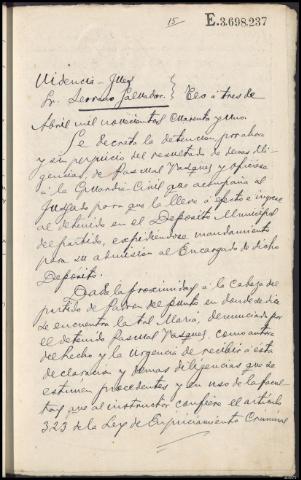 15
E.3.698.237
Videncia-Juez
Sr. Serrano Salvador.} Teo á tres de
Abril mil novecientos cuarenta y uno.
Se decreta la detención por ahora
y sin perjuicio del resultado de demas dili-
gencias, de Pascual Vazquez y oficiese
á la Guardia Civil que acompaña al
Juzgado para que la lleve á efecto é ingrese
al detenido en el Deposito Municipal
del partido, expidiendose mandamiento
para su admisión al Encargado de dicho
Deposito.
Dada la proximidad á la cabeza del
partido de Padron del punto en donde se dice
se encuentra la tal Maria, denunciada por
el detenido Pascual Vazquez, como autora
del hecho y la urgencia de recibir á ésta
declaracion y demas diligencias que se
estimen procedentes y en uso de la facul-
tad que al instructor confiere el artículo
323 de la Ley de Enjuiciamiento Criminal